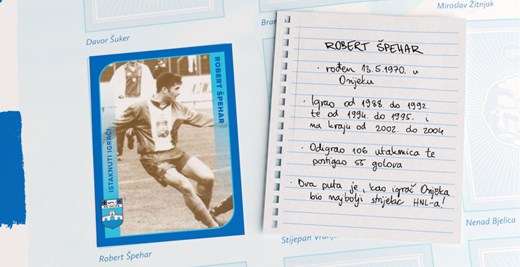 Davor Šuker
Miroslav Žitnjak
ROBERT ŠPEHAR
ISTAKNUTI IGRAČI
Robert Špehar
ROBERT ŠPEHAR
· rođen 13.5.1970. u
Osijeku
· Igrao od 1988. do 1992.
te od 1994. do 1995. i
na kraju od 2002. do 2004
· Odigrao 106 utakmica te
postigao 55 golova
· Dva puta je, kao igrač Osijeka
bio najbolji strijelac HNL-a!
Stijepan
Nenad Bjelica